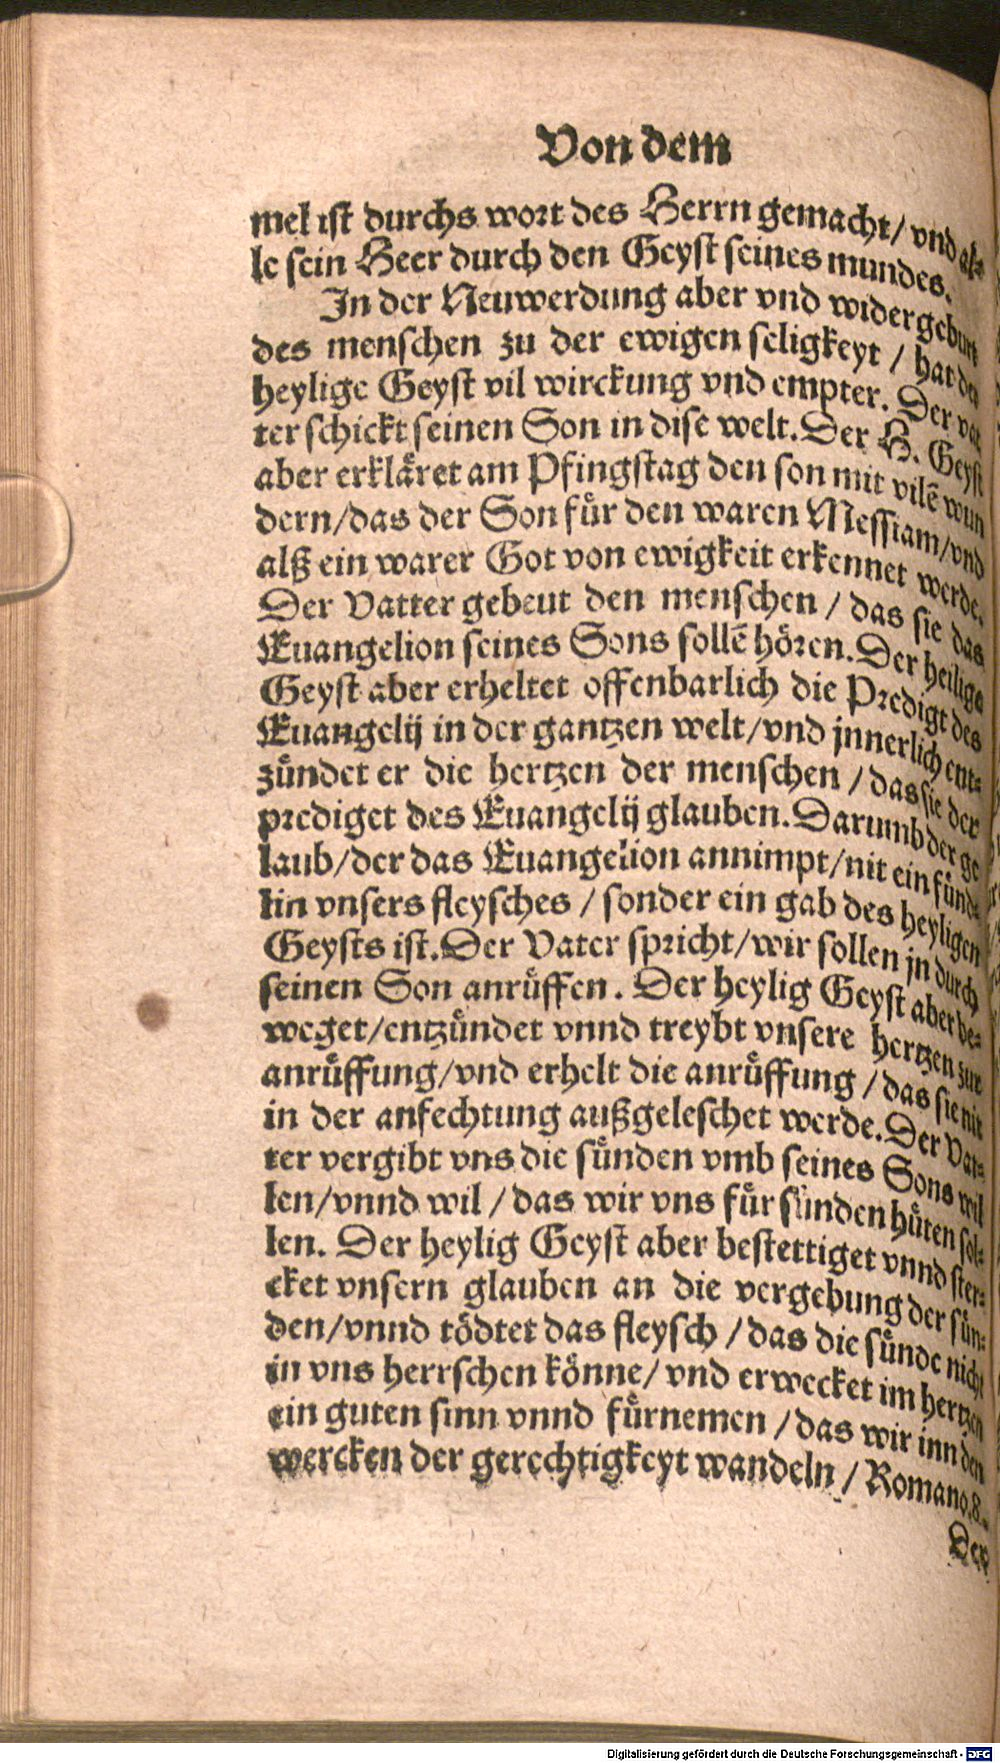 Von dem
mel ist durchs wort des Herrn gemacht/ vnd al⸗
le sein Heer durch den Geyst seines mundes.
In der Neuwerdung aber vnd widergeburt
des menschen zu der ewigen seligkeyt / hat der
heylige Geyst vil wirckung vnd empter. Der vat
ter schickt seinen Son in dise welt. Der H. Geyst
aber erkläret am Pfingstag den son mit vilẽ wun
dern/das der Son für den waren Messiam/vnd
alß ein warer Got von ewigkeit erkennet werde.
Der Vatter gebeut den menschen / das sie das
Euangelion seines Sons sollẽ hören. Der heilige
Geyst aber erheltet offenbarlich die Predigt des
Euangelij in der gantzen welt/vnd jnnerlich ent⸗
zündet er die hertzen der menschen / das sie der
prediget des Euangelij glauben. Darumb der ge
laub/der das Euangelion annimpt/nit ein fünd⸗
lin vnsers fleysches / sonder ein gab des heyligen
Geysts ist. Der Vater spricht/wir sollen jn durch
seinen Son anrüffen. Der heylig Geyst aber be⸗
weget/entzündet vnnd treybt vnsere hertzen zur
anrüffung/vnd erhelt die anrüffung / das sie nit
in der anfechtung außgeleschet werde. Der Vat⸗
ter vergibt vns die sünden vmb seines Sons wil
len/vnnd wil / das wir vns für sünden hüten sol⸗
len. Der heylig Geyst aber bestettiget vnnd ster⸗
cket vnsern glauben an die vergebung der sün⸗
den/vnnd tödtet das fleysch / das die sünde nicht
in vns herrschen könne/ vnd erwecket im hertzen
ein guten sinn vnnd fürnemen / das wir inn den
wercken der gerechtigkeyt wandeln / Romano.8.
Der
Digitalisierung gefördert durch die Deutsche Forschungsgemeinschaft - DFG